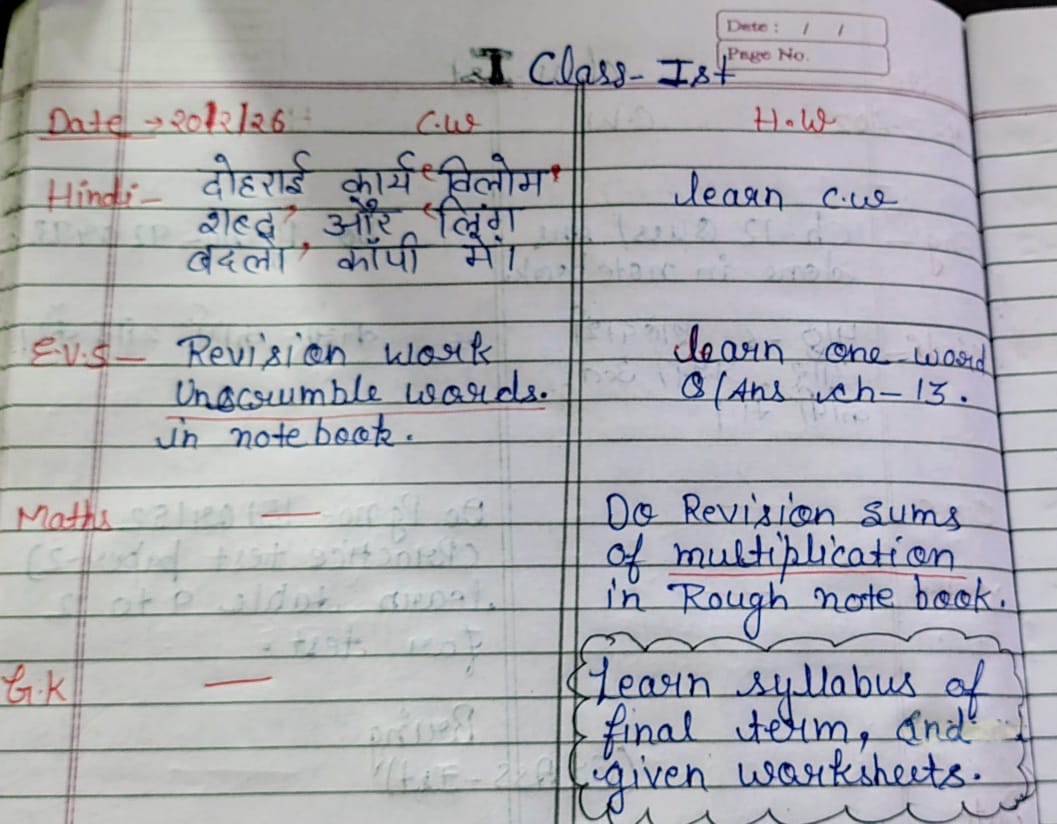 Date: / /
Page No.
I Class-Ist
Date → 20/2/26 C.W H.W
Hindi- दोहराई कार्य ‘विलोम learn c.w
शब्द’ और ‘लिंग
बदलो’ कॉपी में।
E.V.S- Revision work learn one word
Unscrumble words. Q/Ans ch-13.
in note book.
Maths — Do Revision sums
of multiplication
in Rough note book.
G.K — Learn syllabus of
final term, and
given worksheets.